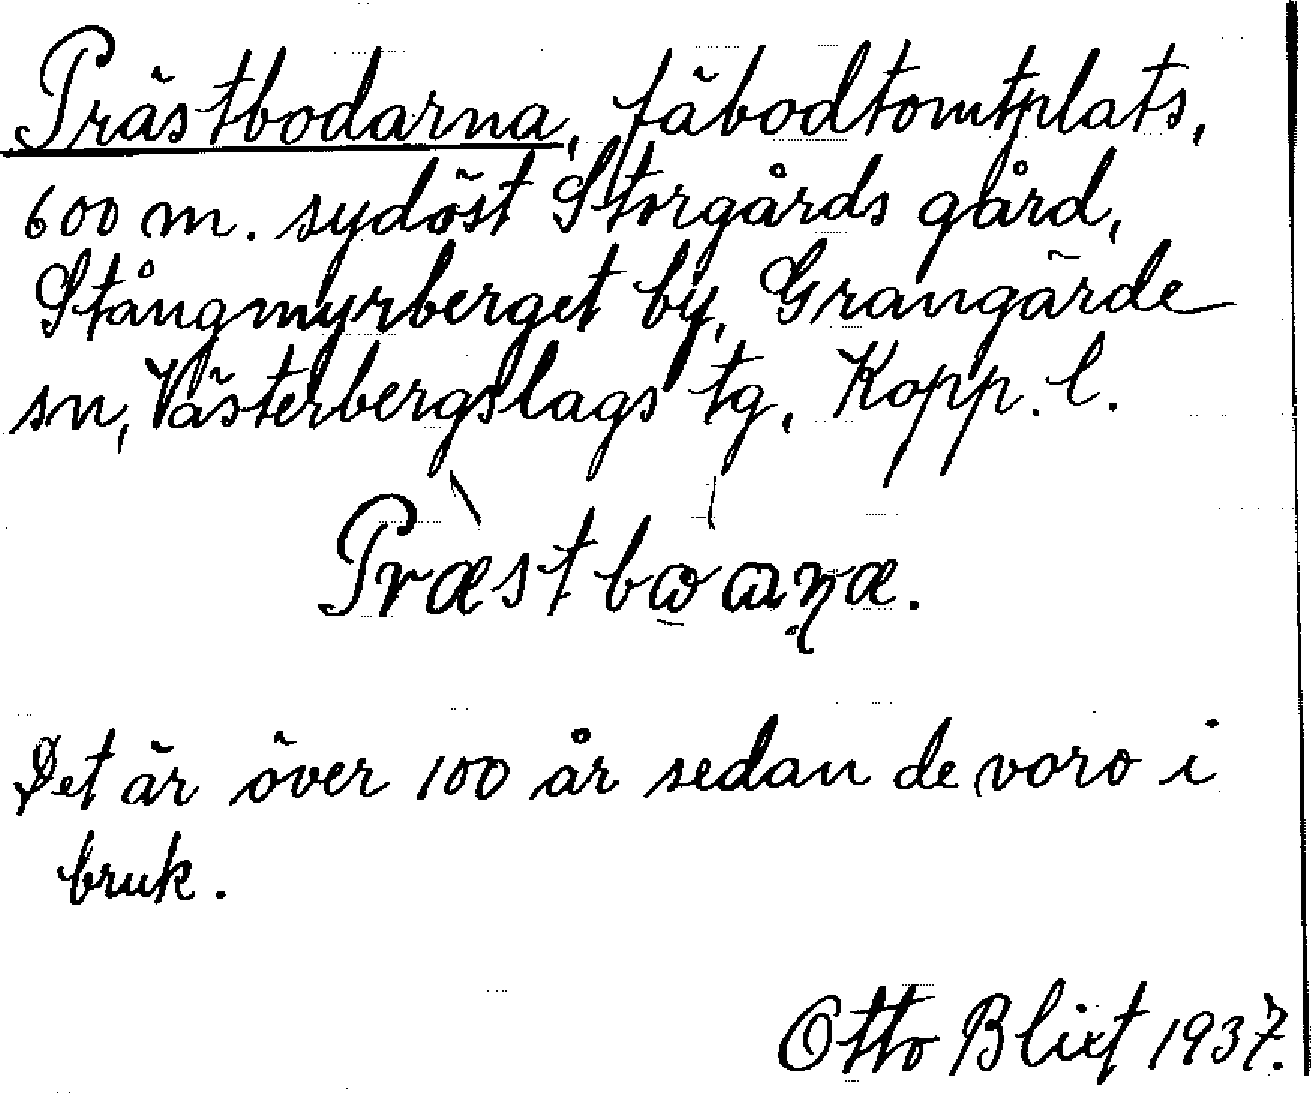 Prästbodarna, fäbodtomtplats,
600 m. sydöst Storgårds gård,
Stångmyrberget by, Grangärde
sn, Västerbergslags tg, Kopp. l.
Det är över 100 år sedan de voro i
bruk.
Otto Blixt 1937.